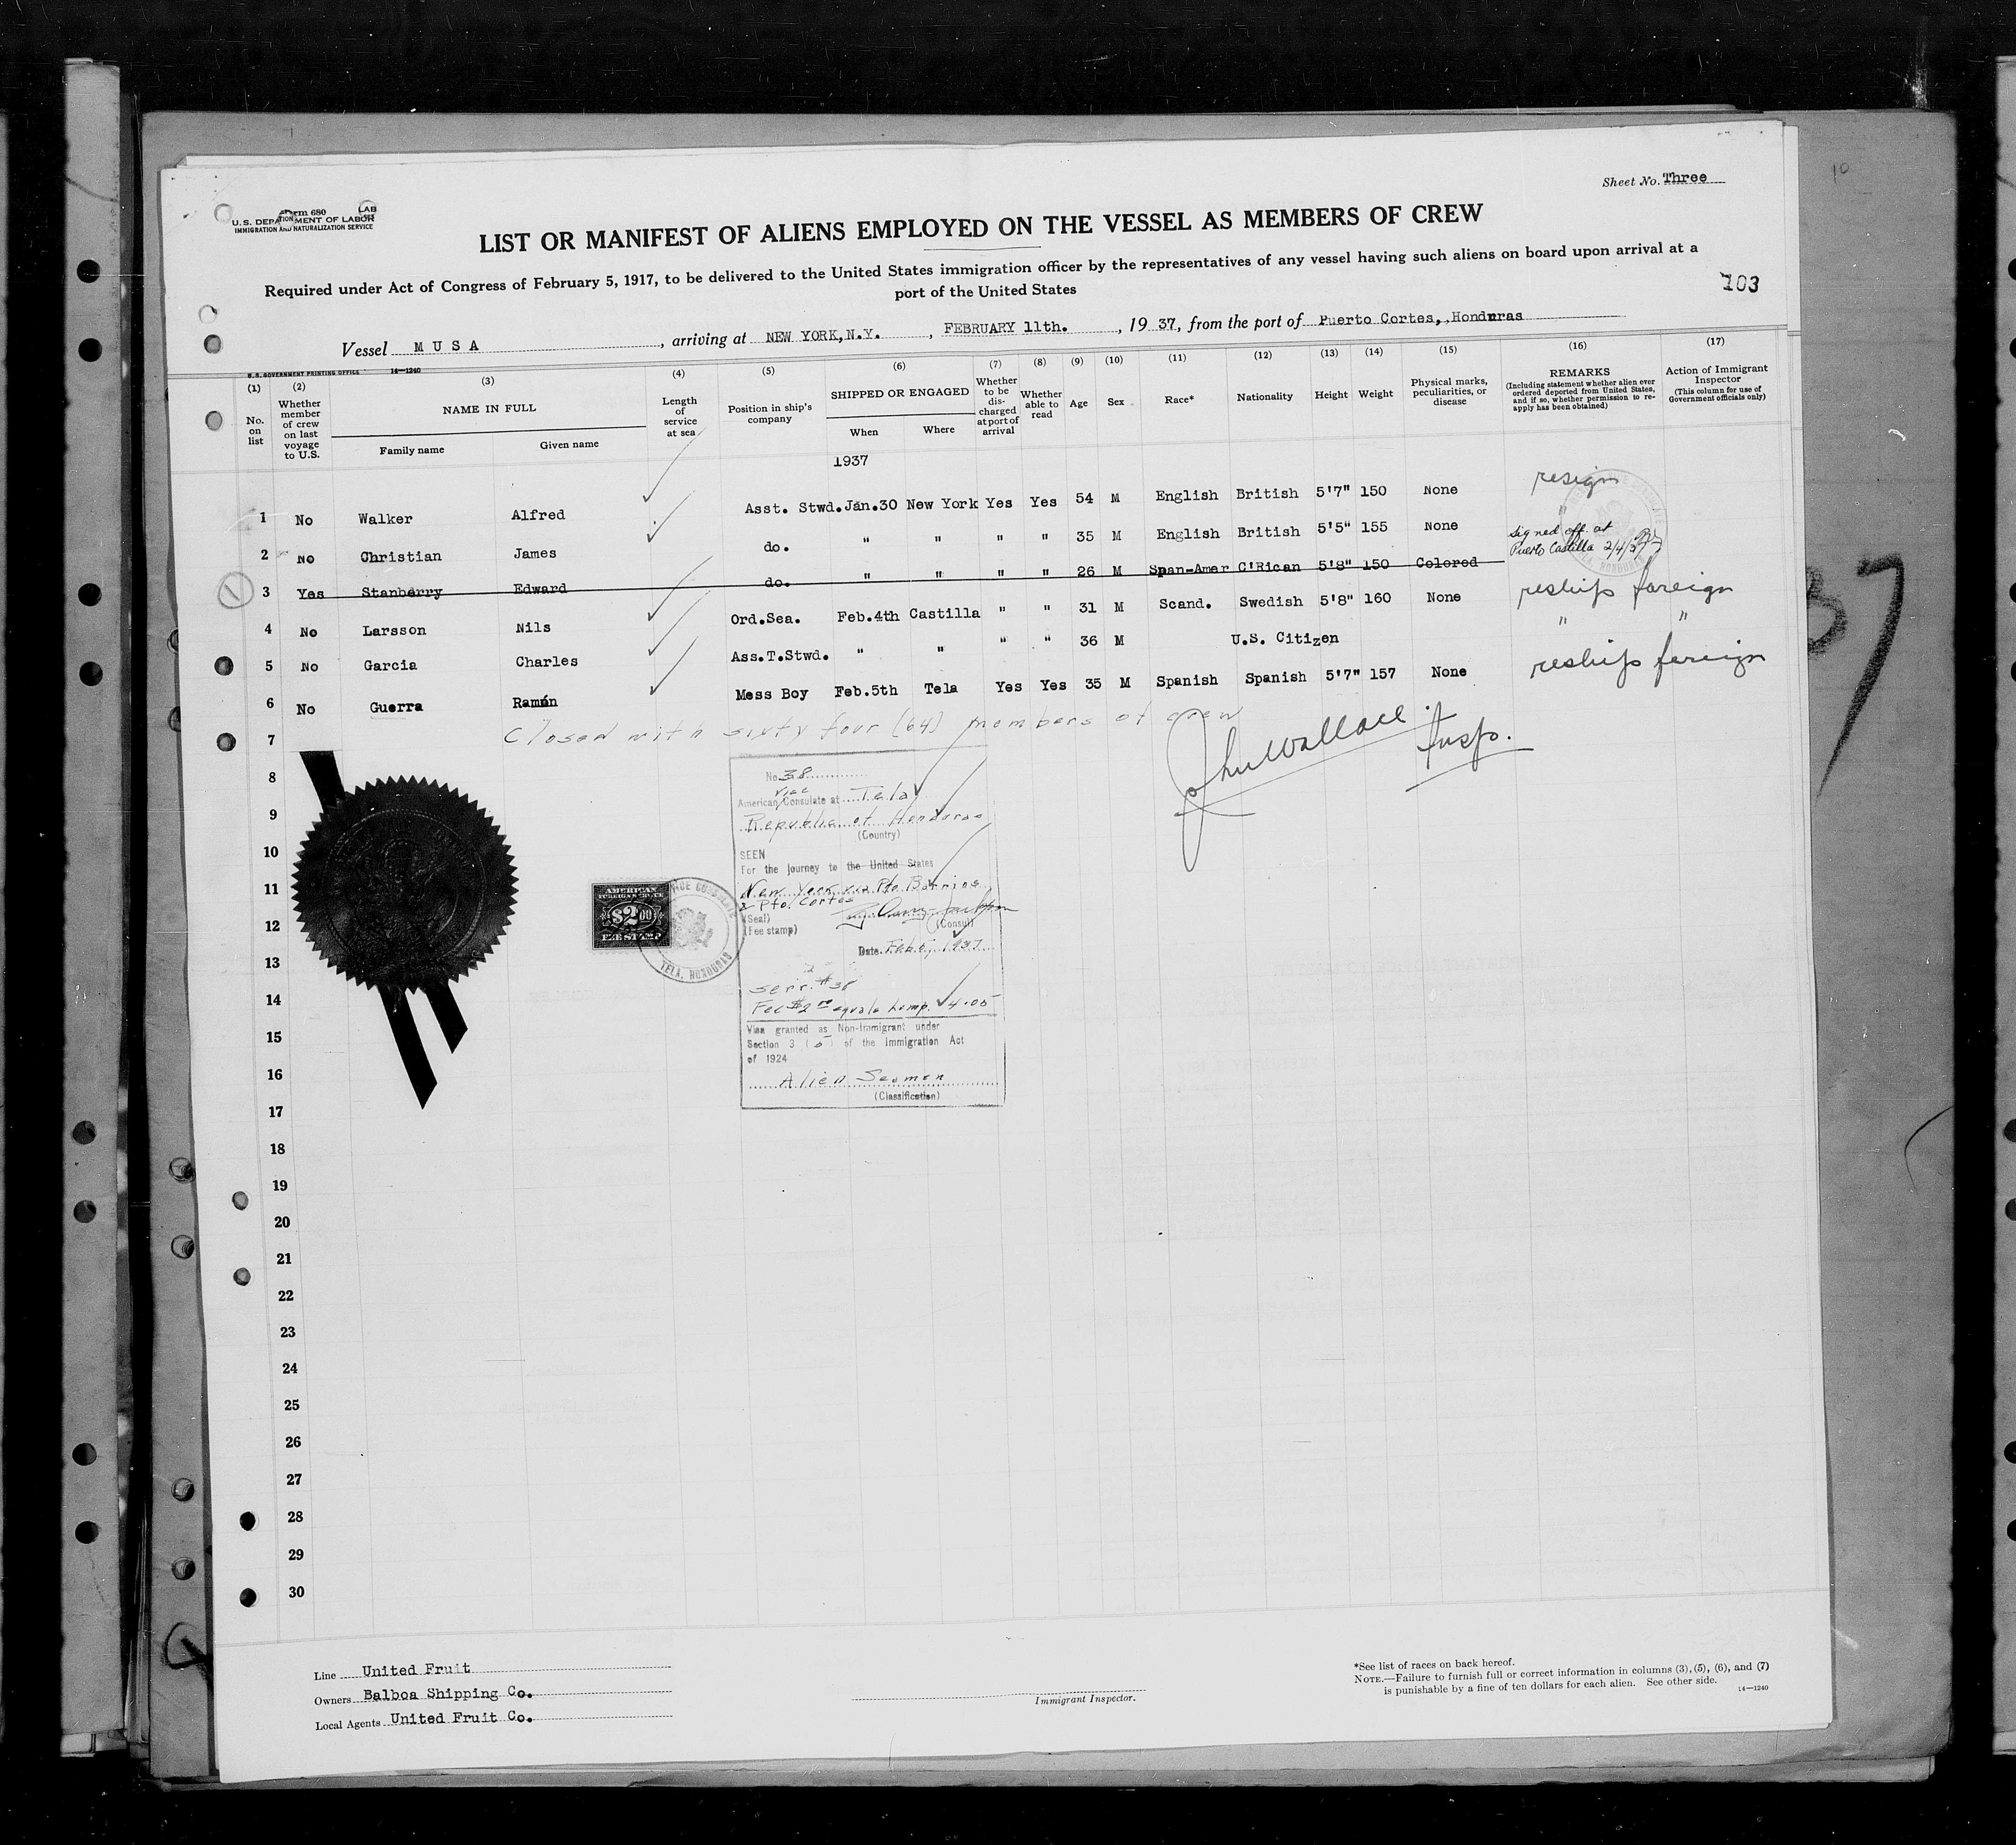 Sheet No. Three
Form 680
U.S. DEPARTMENT OF LABOR
IMMIGRATION AND NATURALIZATION SERVICE
LIST OR MANIFEST OF ALIENS EMPLOYED ON THE VESSEL AS MEMBERS OF CREW
Required under Act of Congress of February 5, 1917, to be delivered to the United States immigration officer by the representatives of any vessel having such aliens on board upon arrival at a
port of the United States
103
Vessel MUSA, arriving at NEW YORK, N.Y., FEBRUARY 11th., 1937, from the port of Puerto Cortes, Honduras
U.S. GOVERNMENT PRINTING OFFICE 14—1240
(1) No. on list
(2) Whether member of crew on last voyage to U.S.
(3) NAME IN FULL
Family name Given name
(4) Length of service at sea
(5) Position in ship's company
(6) SHIPPED OR ENGAGED
When Where
(7) Whether to be discharged at port of arrival
(8) Whether able to read
(9) Age
(10) Sex
(11) Race*
(12) Nationality
(13) Height
(14) Weight
(15) Physical marks, peculiarities, or disease
(16) REMARKS
(Including statement whether alien ever ordered deported from United States, and if so, whether permission to reapply has been obtained)
(17) Action of Immigrant Inspector
(This column for use of Government officials only)
1937
1 No Walker Alfred Asst. Stwd. Jan.30 New York Yes Yes 54 M English British 5'7" 150 None resign
2 No Christian James do. " " " " 35 M English British 5'5" 155 None "
3 Yes Stanberry Edward do. " " " " 26 M Span-Amer C'Rican 5'8" 150 Colored Signed off at Puerto Castilla 2/4/37
4 No Larsson Nils Ord.Sea. Feb.4th Castilla " " 31 M Scand. Swedish 5'8" 160 None reship foreign
5 No Garcia Charles Ass.T.Stwd. " " " " 36 M U.S. Citizen " "
6 No Guerra Ramón Mess Boy Feb.5th Tela Yes Yes 35 M Spanish Spanish 5'7" 157 None reship foreign
7 Closed with sixty four (64) members of crew
Jno Wallace Insp.
8
9
10
11
12
13
14
15
16
17
18
19
20
21
22
23
24
25
26
27
28
29
30
No. 38
American Vice Consulate at Tela
Republic of Honduras
(Country)
SEEN
For the journey to the United States
New York via Pto Barrios
& Pto. Cortes
(Seal)
(Fee stamp)
(Consul)
Date. Feb 5, 1937
Serr. #38
Fee $2 00 equals Lemp. 4.00
Visa granted as Non-Immigrant under
Section 3 (5) of the Immigration Act
of 1924
Alien Seamen
(Classification)
AMERICAN
FOREIGN SERVICE
$2 00
FEE STAMP
VICE CONSULATE
TELA, HONDURAS
Line United Fruit
Owners Balboa Shipping Co.
Local Agents United Fruit Co.
Immigrant Inspector.
*See list of races on back hereof.
NOTE.—Failure to furnish full or correct information in columns (3), (5), (6), and (7)
is punishable by a fine of ten dollars for each alien. See other side.
14—1240